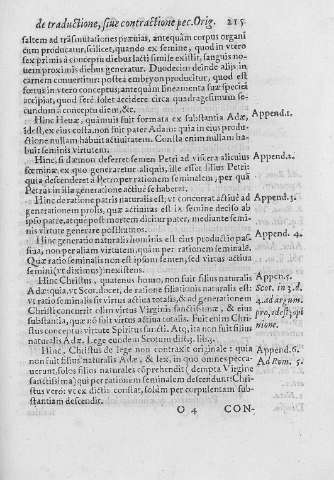 de traductione, siue contractione pec. Orig. 215
saltem ad trãsmutationes præuias, antequàm corpus organi
cum producatur, scilicet, quando ex semine, quod in vtero
sex primis à conceptu diebus lacti simile existit, sanguis no
uem proximis diebus generatur. Duodecim deinde aliis in
carnem conuertitur: postea embryon producitur, quod est
fœtus in vtero conceptus; antequàm lineamenta suæ speciei
accipiat, quod ferè solet accidere circa quadragesimum se-
cundum à conceptu diem, &c.
Hinc Heuæ, quamuis fuit formata ex substantia Adæ, Append.1.
idest, ex eius costa, non fuit pater Adam: quia in eius produ-
ctione nullam habuit actiuitatem. Costa enim nullam ha-
buit seminis virtutem.
Hinc, si dæmon deferret semen Petri ad viscera alicuius Append.2.
fœminæ ex quo generaretur aliquis, ille esset filius Petri:
quia descenderet à Petro per rationem seminalem, per quã
Petrus in illa generatione actiuè se haberet.
Hinc de ratione patris naturalis est; vt concurrat actiuè ad Append.3.
generationem prolis, quæ actio anas est ix semine deciso ab
ipso patre, atque eo ipsum mortuus dicitur pater, mediante semi-
nis virtute generare possumus.
Hinc generatio naturalis hominis est eius productio pas Append. 4.
siua, non per aliam virtutem, quàm per rationem seminalẽ.
Quæ ratio seminalis non est ipsum semen, sed virtus actiua
semini (vt diximus) inexistens.
Hinc Christus, quatenus homo, non fuit filius naturalis Appen.5.
Adæ: quia, vt Scot. docet, de ratione filiationis naturalis est: Scot. in 3. d.
vt ratio seminalis sit virtus actiua totalis, & ad generationem 4. ad argum.
Christi concurrit olim virtus Virginis sanctissimæ, & eius pro, idest; opi
substantia, quæ nõ fuit virtus actiua totalis. Fuit enim Chri- nione.
stus conceptus virtute Spiritus sancti. Atq; ita non fuit filius
naturalis Adæ. Lege eundem Scotum dist. 3. lit. 3.
Hinc. Christus de lege non contraxit originale: quia Append.6.
non fuit filius naturalis Adæ, & lex, in quo omnes pecca- Ad Rom. 5.
uerunt, solos filios naturales cõprehendit (dempta Virgine
sanctissima) qui per rationem seminalem descendunt: Chri-
stus verò: vt ex dictis constat, solùm per corpulentam sub-
stantiam descendit.
O 4 CON-